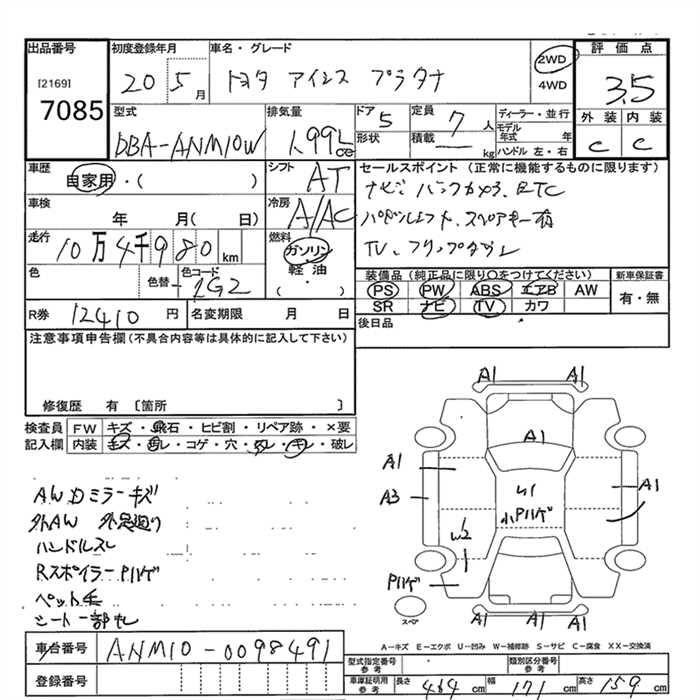 出品番号 初度登録年月 車名・グレード 評価点
[2169] 20 5月 トヨタ アイシス プラタナ 2WD 4WD 3.5
7085
型式 排気量 ドア 5 定員 7人 ディーラー・並行 外装 内装
DBA-ANM10W 1.99L cc 形状 積載 kg モデル年式 年 C C
ハンドル 左・右
車歴 シフト AT セールスポイント (正常に機能するものに限ります)
自家用・( ) ナビ バックカメラ、ETC
車検 冷房 A/AC
年 月( 日) スペアキー有
走行 10万4千980km 燃料 ガソリン TV、
軽油
色 色替 色コード 1G2 ( ) 装備品 (純正品に限り○をつけてください) 新車保証書
PS PW ABS エアB AW 有・無
R券 12410円 名変期限 月 日 SR ナビ TV カワ
注意事項申告欄(不具合内容等は具体的に記入して下さい) 後日品
修復歴 有 〔箇所 〕
検査員 FW キズ・飛石・ヒビ割・リペア跡・×要
記入欄 内装 キズ・汚レ・コゲ・穴・スレ・キレ・破レ
A1 A1
A1
A1 A1
A3
AWDミラーキズ
外AW
ハンドルスレ
RスポイラーPハゲ
小Pハゲ
W2
Pハゲ
スペア
A1 A1 A1
車台番号 ANM10-0098491
A-キズ E-エクボ U-凹み W-補修跡 S-サビ C-腐食 XX-交換済
登録番号
型式指定番号 参考 類別区分番号 参考
車庫証明用 参考 長さ 464cm 幅 171cm 高さ 159cm